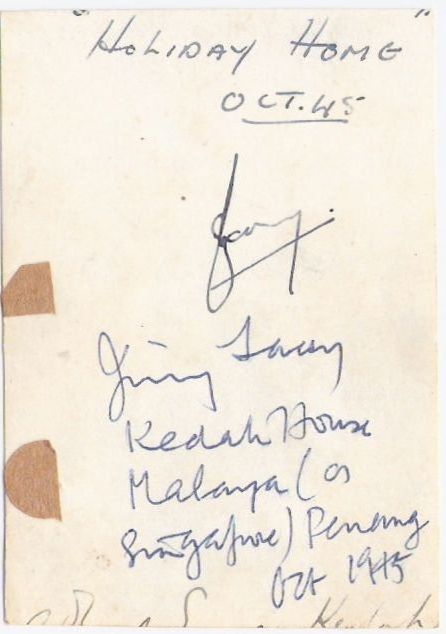 "HOLIDAY HOME"
OCT. 45
Jimmy
Kedah House
Malaya (or
Singapore) Penang
Oct 1945
Kedah